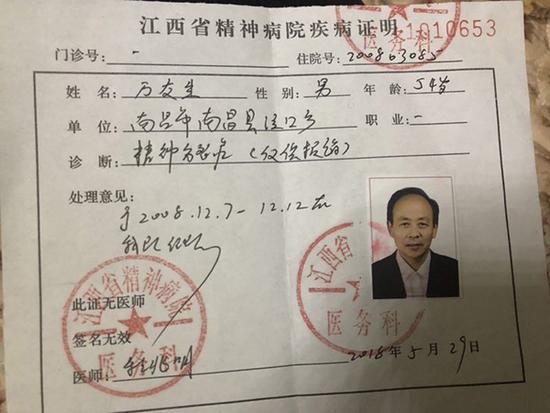 江西省精神病院疾病证明
1010653
医务科
门诊号: - 住院号: 200863085
姓 名: 万友生 性 别: 男 年 龄: 54岁
单 位: 南昌市南昌县泾口乡 职 业: -
诊 断: 精神分裂症 (仅供报销)
处理意见:
于2008.12.7-12.12在
我院住院
江西省精神病院
医务科
江西省
医务科
此证无医师
签名无效
医师:
2018年5月29日